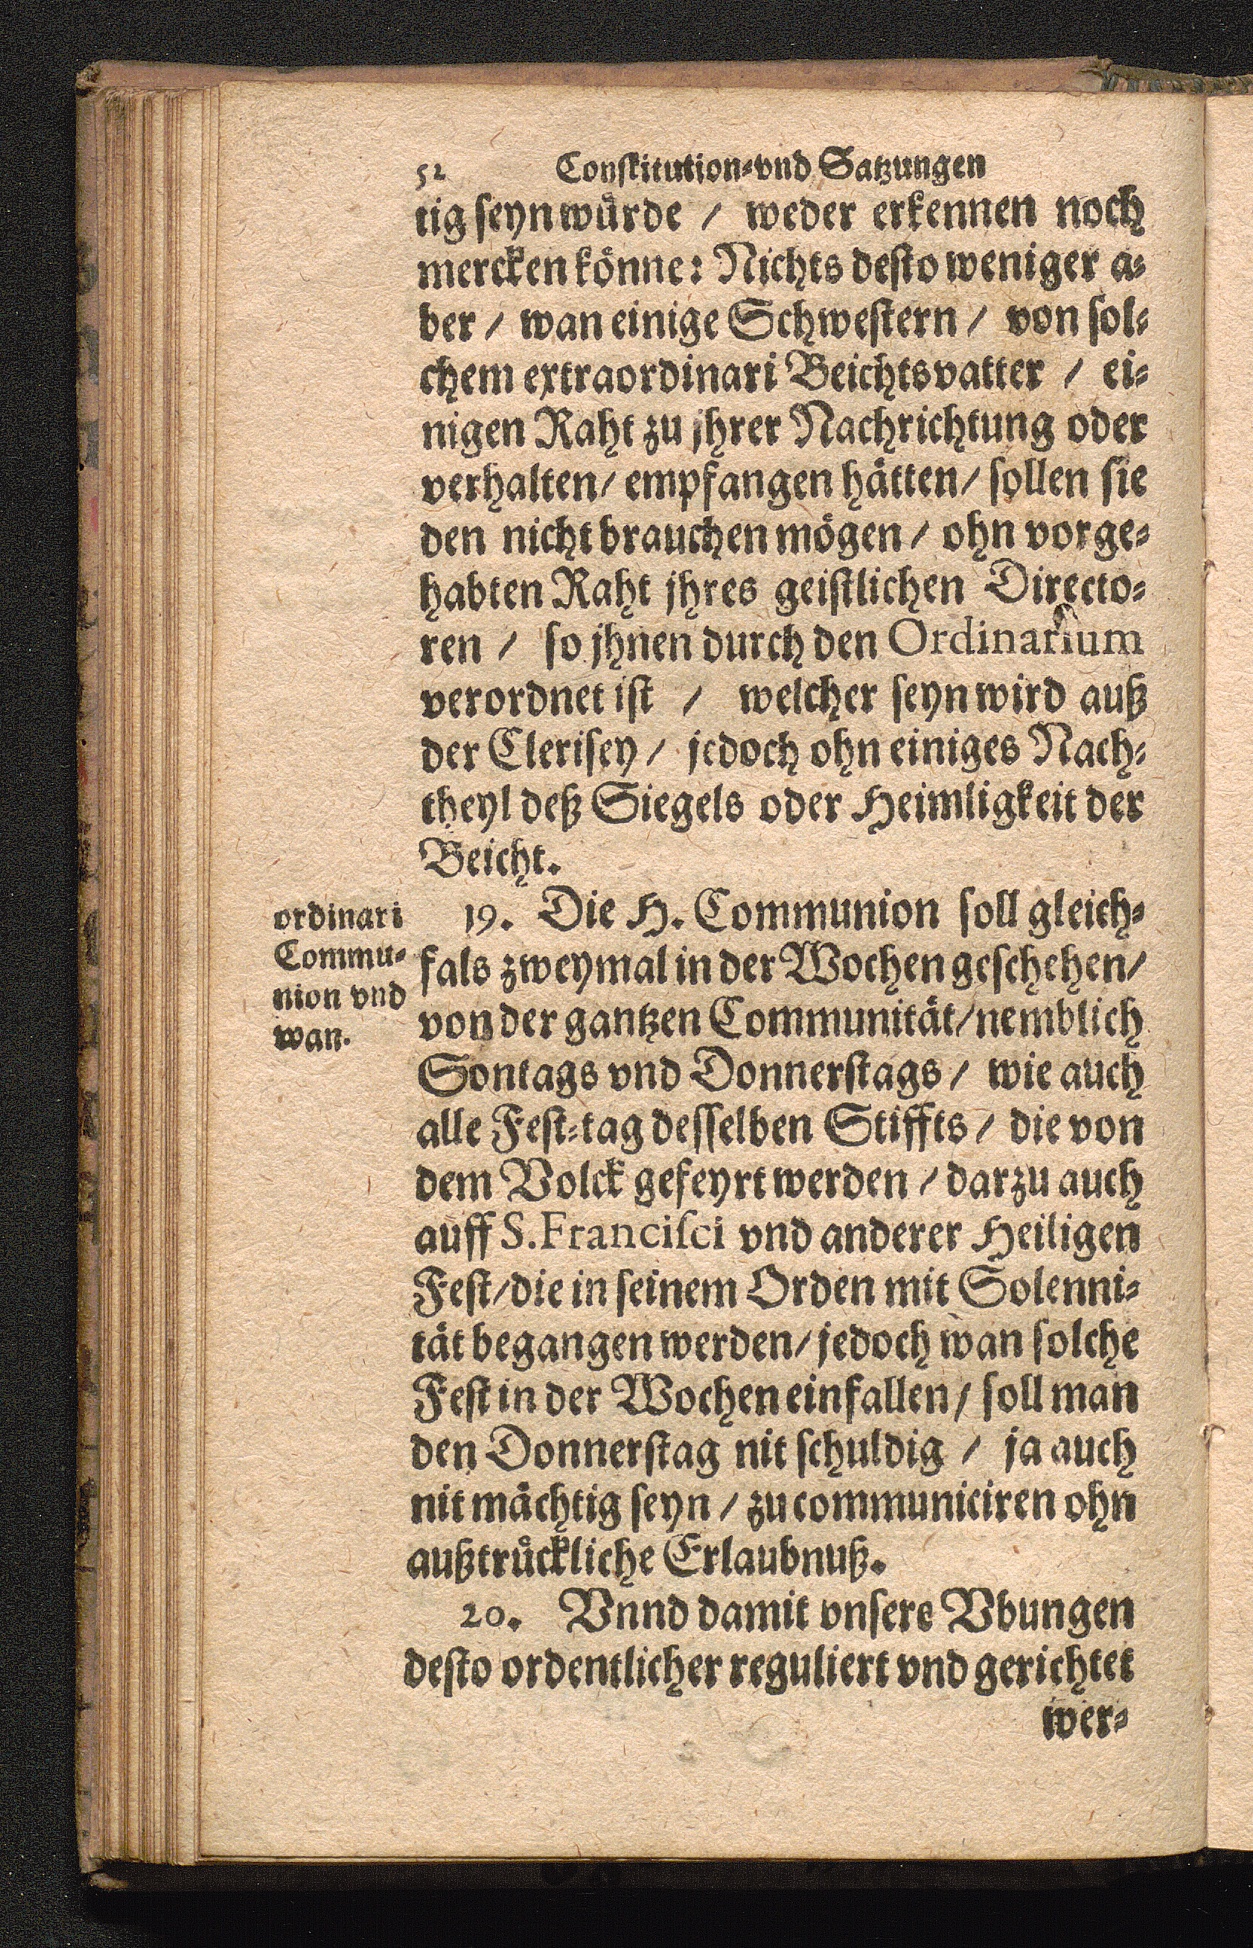 52 Constitution-vnd Satzungen
tig seyn würde / weder erkennen noch
mercken könne: Nichts desto weniger a-
ber / wan einige Schwestern / von sol-
chem extraordinari Beichtsvatter / ei-
nigen Raht zu jhrer Nachrichtung oder
verhalten / empfangen hätten / sollen sie
den nicht brauchen mögen / ohn vorge-
habten Raht jhres geistlichen Directo-
ren / so jhnen durch den Ordinarium
verordnet ist / welcher seyn wird auß
der Clerisey / jedoch ohn einiges Nach-
theyl deß Siegels oder Heimligkeit der
Beicht.
ordinari
Commu-
nion vnd
wan.
19. Die H. Communion soll gleich-
fals zweymal in der Wochen geschehen /
von der gantzen Communität / nemblich
Sontags vnd Donnerstags / wie auch
alle Fest-tag desselben Stiffts / die von
dem Volck gefeyrt werden / darzu auch
auff S. Francisci vnd anderer Heiligen
Fest / die in seinem Orden mit Solenni-
tät begangen werden / jedoch wan solche
Fest in der Wochen einfallen / soll man
den Donnerstag nit schuldig / ja auch
nit mächtig seyn / zu communiciren ohn
außtrückliche Erlaubnuß.
20. Vnnd damit vnsere Vbungen
desto ordentlicher reguliert vnd gerichtet
wer-